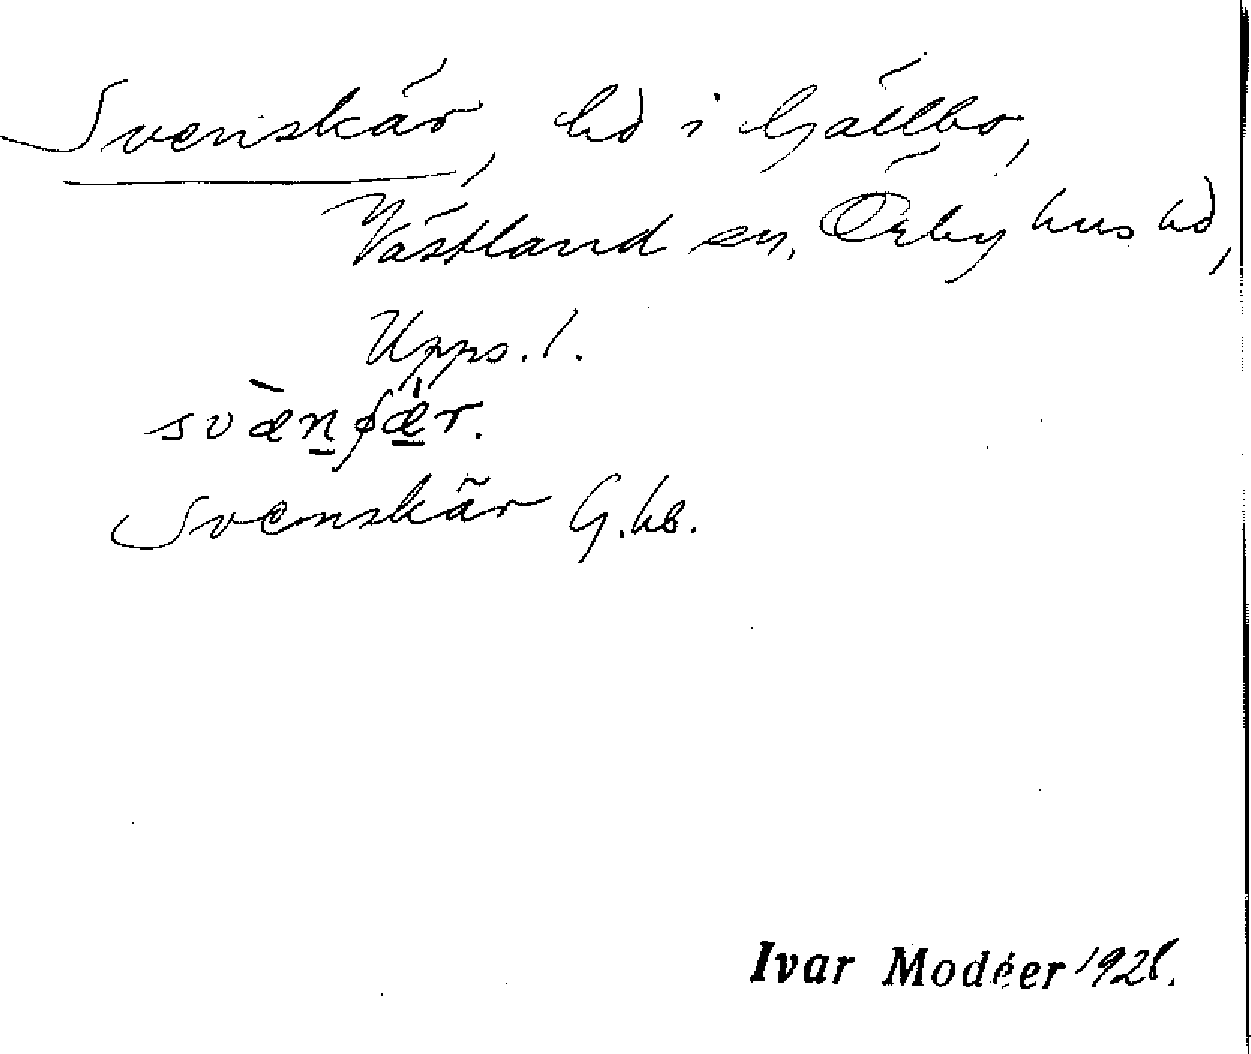 Svenskär, hd i Gällbo,
Västland sn, Örbyhus hd,
Upps. l.
Svenskär G.kb.
Ivar Modéer 192